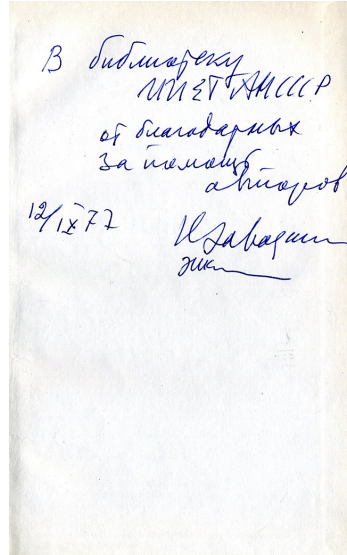 В библиотеку
ИИЕТ АН СССР
от благодарных
за помощь
авторов
12/IX 77